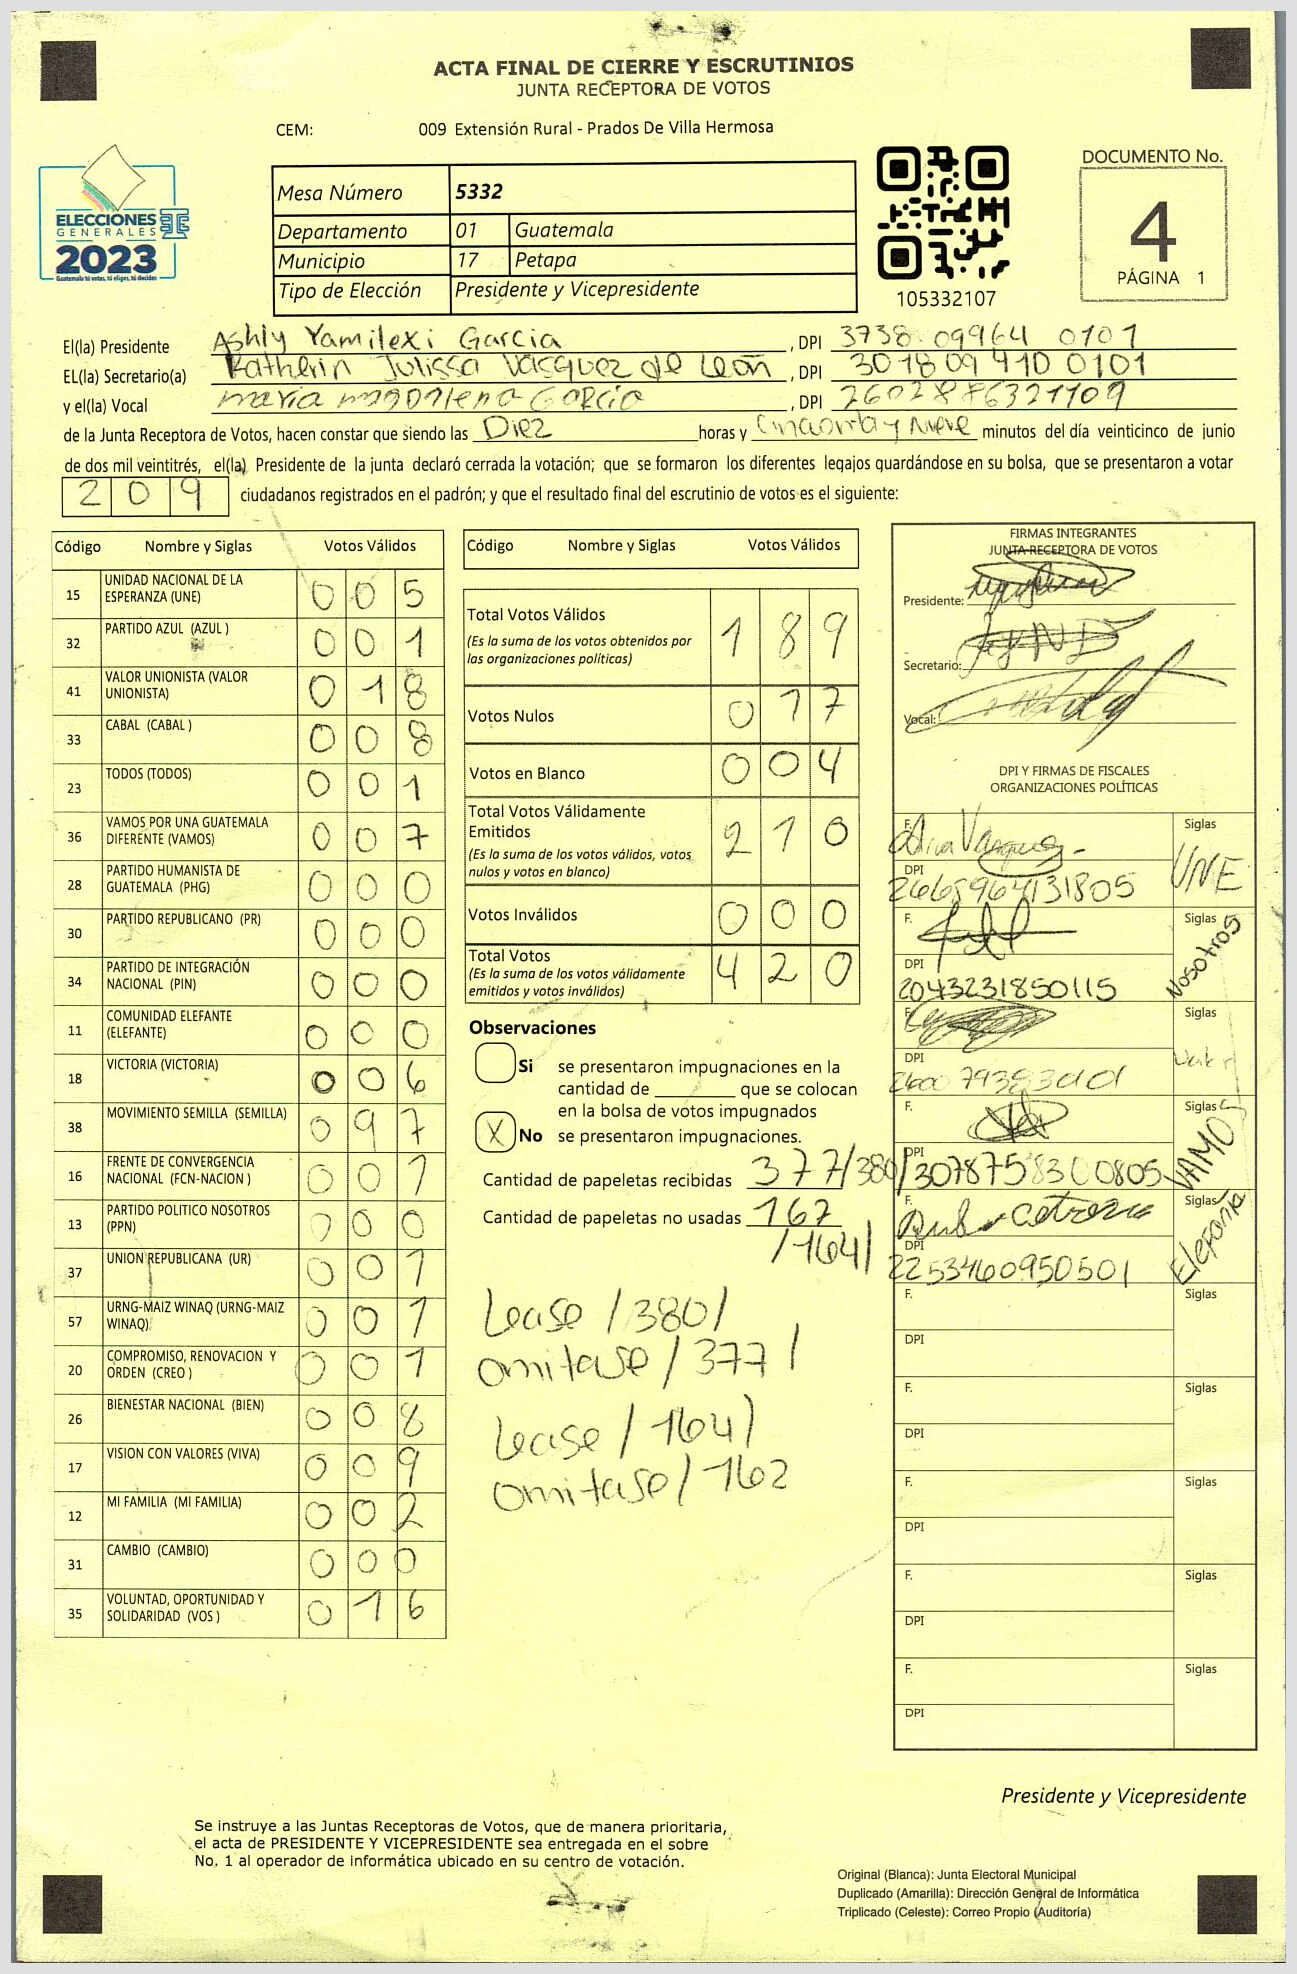 ACTA FINAL DE CIERRE Y ESCRUTINIOS
JUNTA RECEPTORA DE VOTOS
CEM: 009 Extensión Rural - Prados De Villa Hermosa
ELECCIONES
GENERALES
2023
Guatemala tú votas, tú eliges, tú decides
Mesa Número 5332
Departamento 01 Guatemala
Municipio 17 Petapa
Tipo de Elección Presidente y Vicepresidente
105332107
DOCUMENTO No.
4
PÁGINA 1
El(la) Presidente Ashly Yamilexi Garcia, DPI 3738 09964 0101
EL(la) Secretario(a) Katherin Julissa Vasquez de León, DPI 3018094100101
y el(la) Vocal maria magdalena Garcia, DPI 2602886321109
de la Junta Receptora de Votos, hacen constar que siendo las Diez horas y Cincuenta y Nueve minutos del día veinticinco de junio
de dos mil veintitrés, el(la) Presidente de la junta declaró cerrada la votación; que se formaron los diferentes legajos guardándose en su bolsa, que se presentaron a votar
209 ciudadanos registrados en el padrón; y que el resultado final del escrutinio de votos es el siguiente:
Código Nombre y Siglas Votos Válidos
15 UNIDAD NACIONAL DE LA ESPERANZA (UNE) 005
32 PARTIDO AZUL (AZUL ) 001
41 VALOR UNIONISTA (VALOR UNIONISTA) 018
33 CABAL (CABAL ) 008
23 TODOS (TODOS) 001
36 VAMOS POR UNA GUATEMALA DIFERENTE (VAMOS) 007
28 PARTIDO HUMANISTA DE GUATEMALA (PHG) 000
30 PARTIDO REPUBLICANO (PR) 000
34 PARTIDO DE INTEGRACIÓN NACIONAL (PIN) 000
11 COMUNIDAD ELEFANTE (ELEFANTE) 000
18 VICTORIA (VICTORIA) 006
38 MOVIMIENTO SEMILLA (SEMILLA) 097
16 FRENTE DE CONVERGENCIA NACIONAL (FCN-NACION ) 001
13 PARTIDO POLITICO NOSOTROS (PPN) 000
37 UNION REPUBLICANA (UR) 001
57 URNG-MAIZ WINAQ (URNG-MAIZ WINAQ) 001
20 COMPROMISO, RENOVACION Y ORDEN (CREO ) 001
26 BIENESTAR NACIONAL (BIEN) 008
17 VISION CON VALORES (VIVA) 009
12 MI FAMILIA (MI FAMILIA) 002
31 CAMBIO (CAMBIO) 000
35 VOLUNTAD, OPORTUNIDAD Y SOLIDARIDAD (VOS ) 016
Código Nombre y Siglas Votos Válidos
Total Votos Válidos 189
(Es la suma de los votos obtenidos por
las organizaciones políticas)
Votos Nulos 017
Votos en Blanco 004
Total Votos Válidamente
Emitidos 210
(Es la suma de los votos válidos, votos
nulos y votos en blanco)
Votos Inválidos 000
Total Votos 420
(Es la suma de los votos válidamente
emitidos y votos inválidos)
Observaciones
Si se presentaron impugnaciones en la
cantidad de ________ que se colocan
en la bolsa de votos impugnados
X No se presentaron impugnaciones.
Cantidad de papeletas recibidas 377/380/
Cantidad de papeletas no usadas 167
/164/
Lease /380/
omitase /377/
Lease /164/
omitase /162
FIRMAS INTEGRANTES
JUNTA RECEPTORA DE VOTOS
Presidente:
Secretario:
Vocal:
DPI Y FIRMAS DE FISCALES
ORGANIZACIONES POLÍTICAS
F. Siglas UNE
DPI 2668964131805
F. Siglas Nosotros
DPI 2043231850115
F. Siglas
DPI
F. Siglas VAMOS
DPI 3078758300805
F. Siglas Elefante
DPI 2253460950501
F. Siglas
DPI
F. Siglas
DPI
F. Siglas
DPI
F. Siglas
DPI
F. Siglas
DPI
Presidente y Vicepresidente
Se instruye a las Juntas Receptoras de Votos, que de manera prioritaria,
el acta de PRESIDENTE Y VICEPRESIDENTE sea entregada en el sobre
No. 1 al operador de informática ubicado en su centro de votación.
Original (Blanca): Junta Electoral Municipal
Duplicado (Amarilla): Dirección General de Informática
Triplicado (Celeste): Correo Propio (Auditoría)